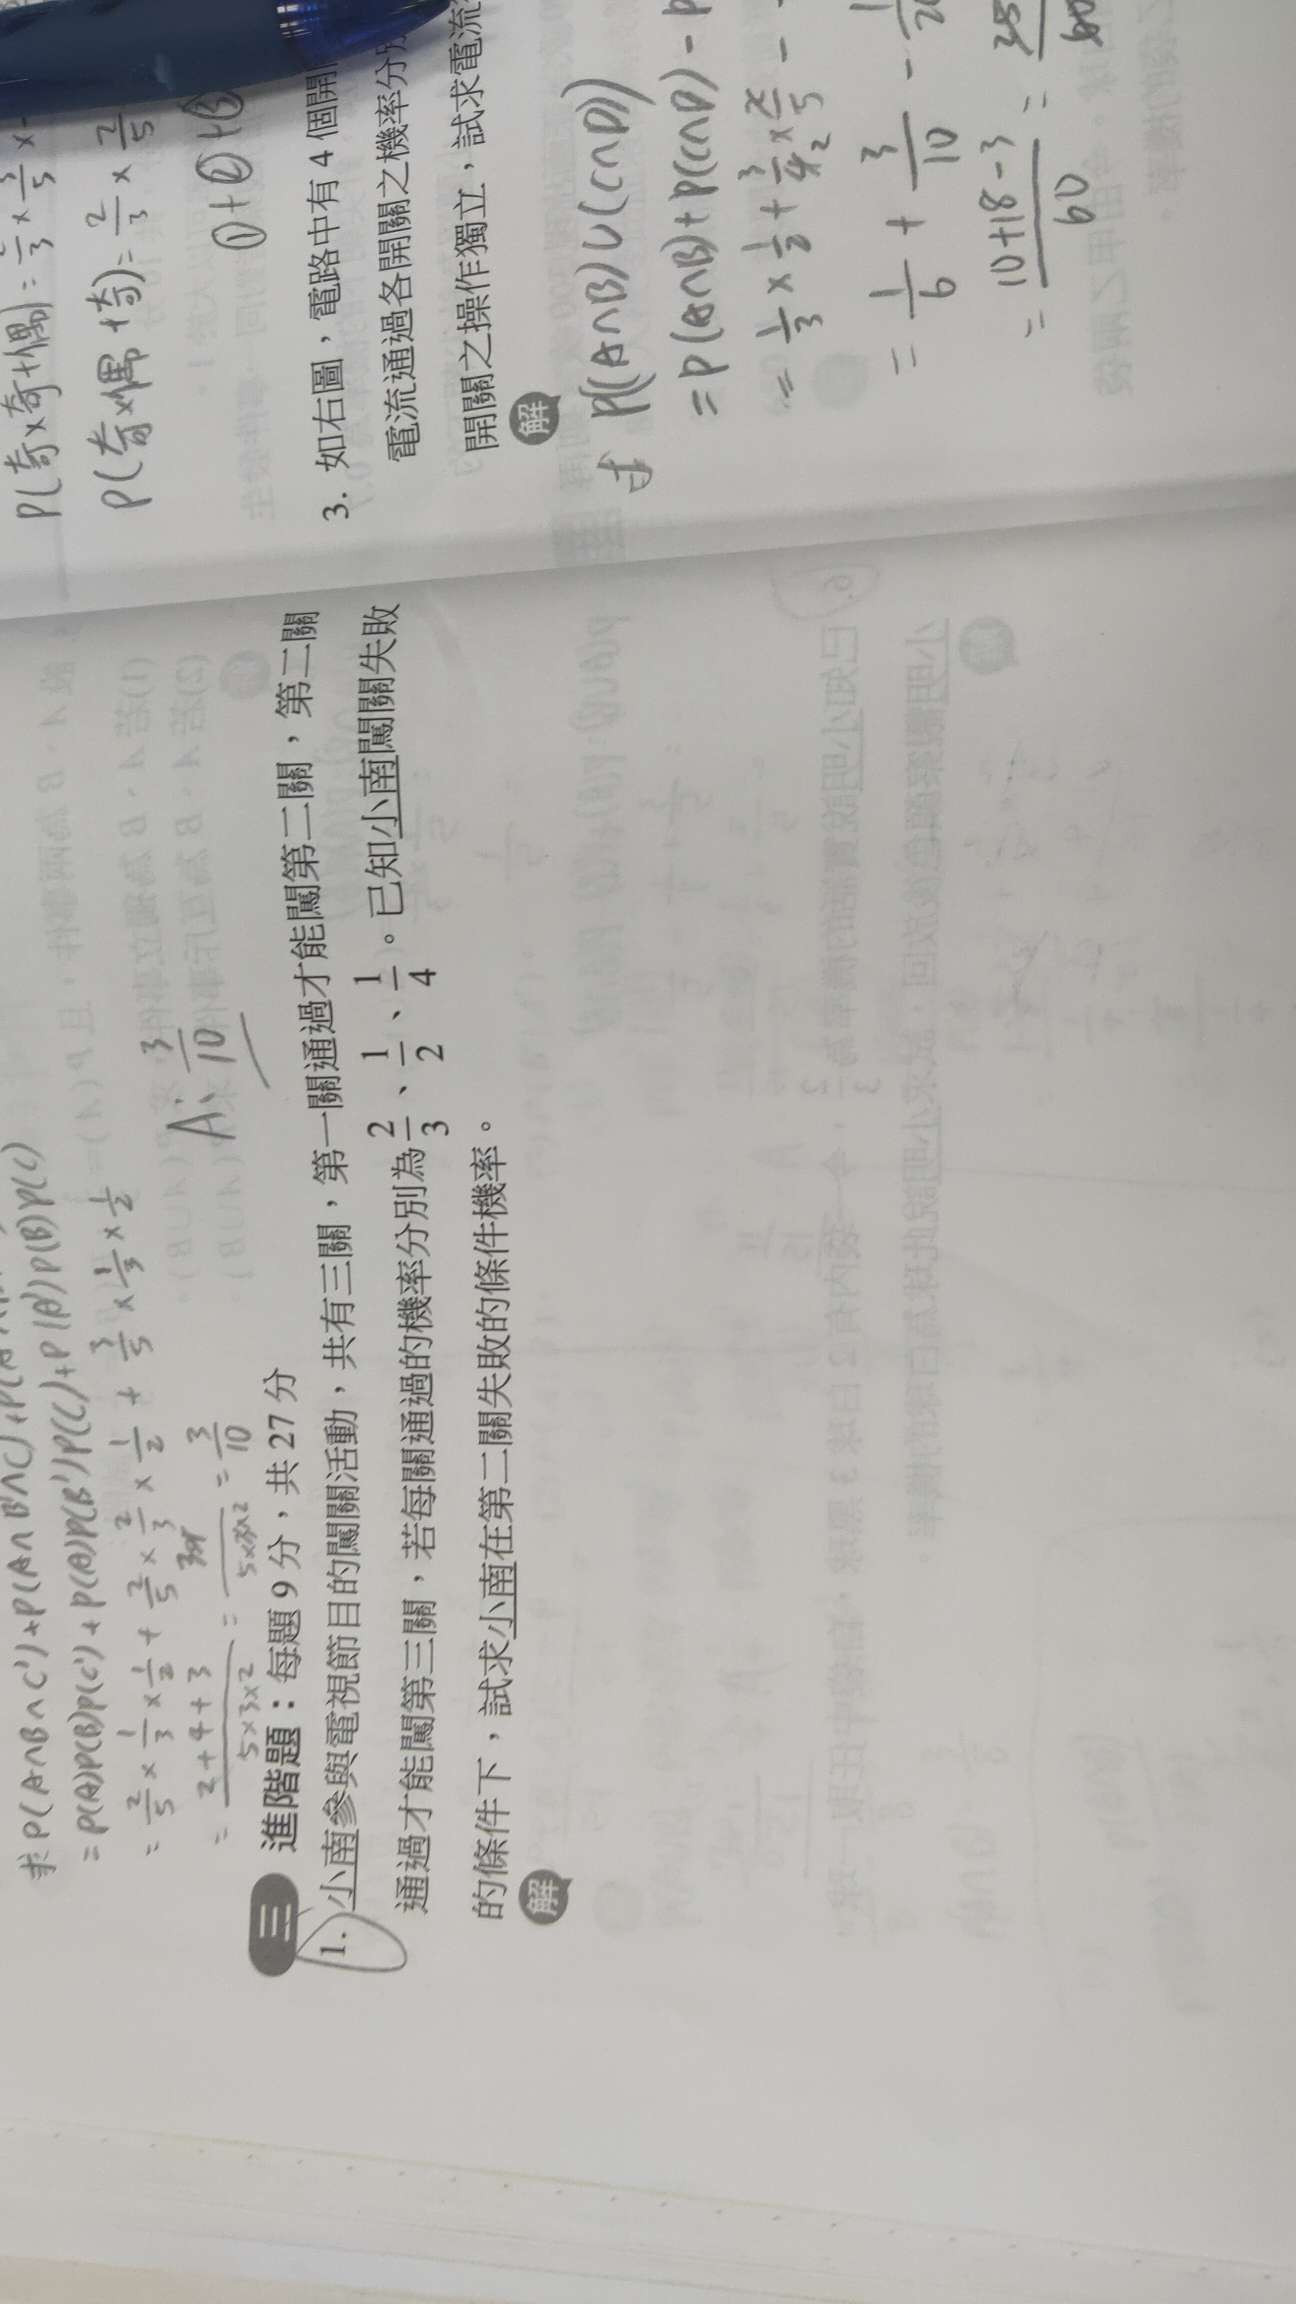 求 P(A∩B∩C')+P(A∩B'∩C)+P(A'
= P(A)P(B)P(C')+P(A)P(B')P(C)+P(A')P(B)P(C)
= 2/5 × 1/3 × 1/2 + 2/5 × 2/3 × 1/2 + 3/5 × 1/3 × 1/2
= (2+4+3)/(5×3×2) = = 3/10
A: 3/10
三 進階題：每題 9 分，共 27 分
1. 小南參與電視節目的闖關活動，共有三關，第一關通過才能闖第二關，第二關
通過才能闖第三關，若每關通過的機率分別為 2/3、1/2、1/4。已知小南闖關失敗
的條件下，試求小南在第二關失敗的條件機率。
解
P(奇×奇+偶)=
P(奇×偶+奇)= 2/3 × 2/5
①+②+③
3. 如右圖，電路中有 4 個開
電流通過各開關之機率分
開關之操作獨立，試求電流
解
P((A∩B)∪(C∩D))
= P(A∩B)+P(C∩D) - P
= 1/3 × 1/2 + 3/4 × 2/5 -
= 1/6 + 3/10 -
= (10+18-3)/60 =